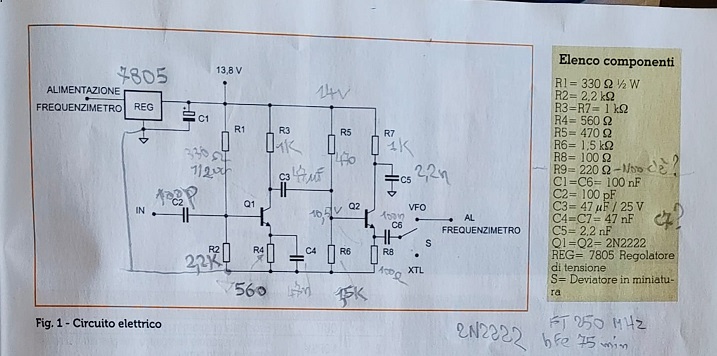 7805
13,8 V
ALIMENTAZIONE
FREQUENZIMETRO
REG
C1
14V
R1
R3
R5
R7
330 Ω
1/2W
1K
470
1K
C3
47 µF
C5
2,2n
100P
C2
IN
Q1
10,5V
Q2
100n
C6
VFO
AL
FREQUENZIMETRO
S
XTL
R2
R4
C4
R6
R8
2,2K
560
47n
1,5K
100Ω
Fig. 1 - Circuito elettrico
Elenco componenti
R1= 330 Ω ½ W
R2= 2,2 kΩ
R3=R7= 1 kΩ
R4= 560 Ω
R5= 470 Ω
R6= 1,5 kΩ
R8= 100 Ω
R9= 220 Ω - Non c'è?
C1=C6= 100 nF
C2= 100 pF
C3= 47 µF / 25 V
C4=C7= 47 nF C7?
C5= 2,2 nF
Q1=Q2= 2N2222
REG= 7805 Regolatore
di tensione
S= Deviatore in miniatu-
ra
2N2222
FT 250 MHz
hFe 75 min